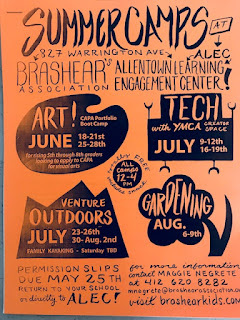 SUMMER CAMPS AT
827 WARRINGTON AVE
ALEC
BRASHEAR'S ALLENTOWN LEARNING
ASSOCIATION ENGAGEMENT CENTER!
ART!
CAPA Portfolio
Boot Camp
JUNE 18-21st
25-28th
for rising 5th through 8th graders
looking to apply to CAPA
for visual arts
TECH
with YMCA CREATOR
SPACE
JULY 9-12th
16-19th
totally FREE
ALL
CAMPS
12-4
PM
snack
VENTURE
OUTDOORS
JULY 23-26th
30-Aug. 2nd
FAMILY KAYAKING - Saturday TBD
GARDENING
AUG.
6-9th
PERMISSION SLIPS
DUE MAY 25TH
RETURN TO YOUR SCHOOL
or directly to ALEC!
for more information
contact MAGGIE NEGRETE
at 412 620 8282
mnegrete@brashearassociation.org
visit brashearkids.com!